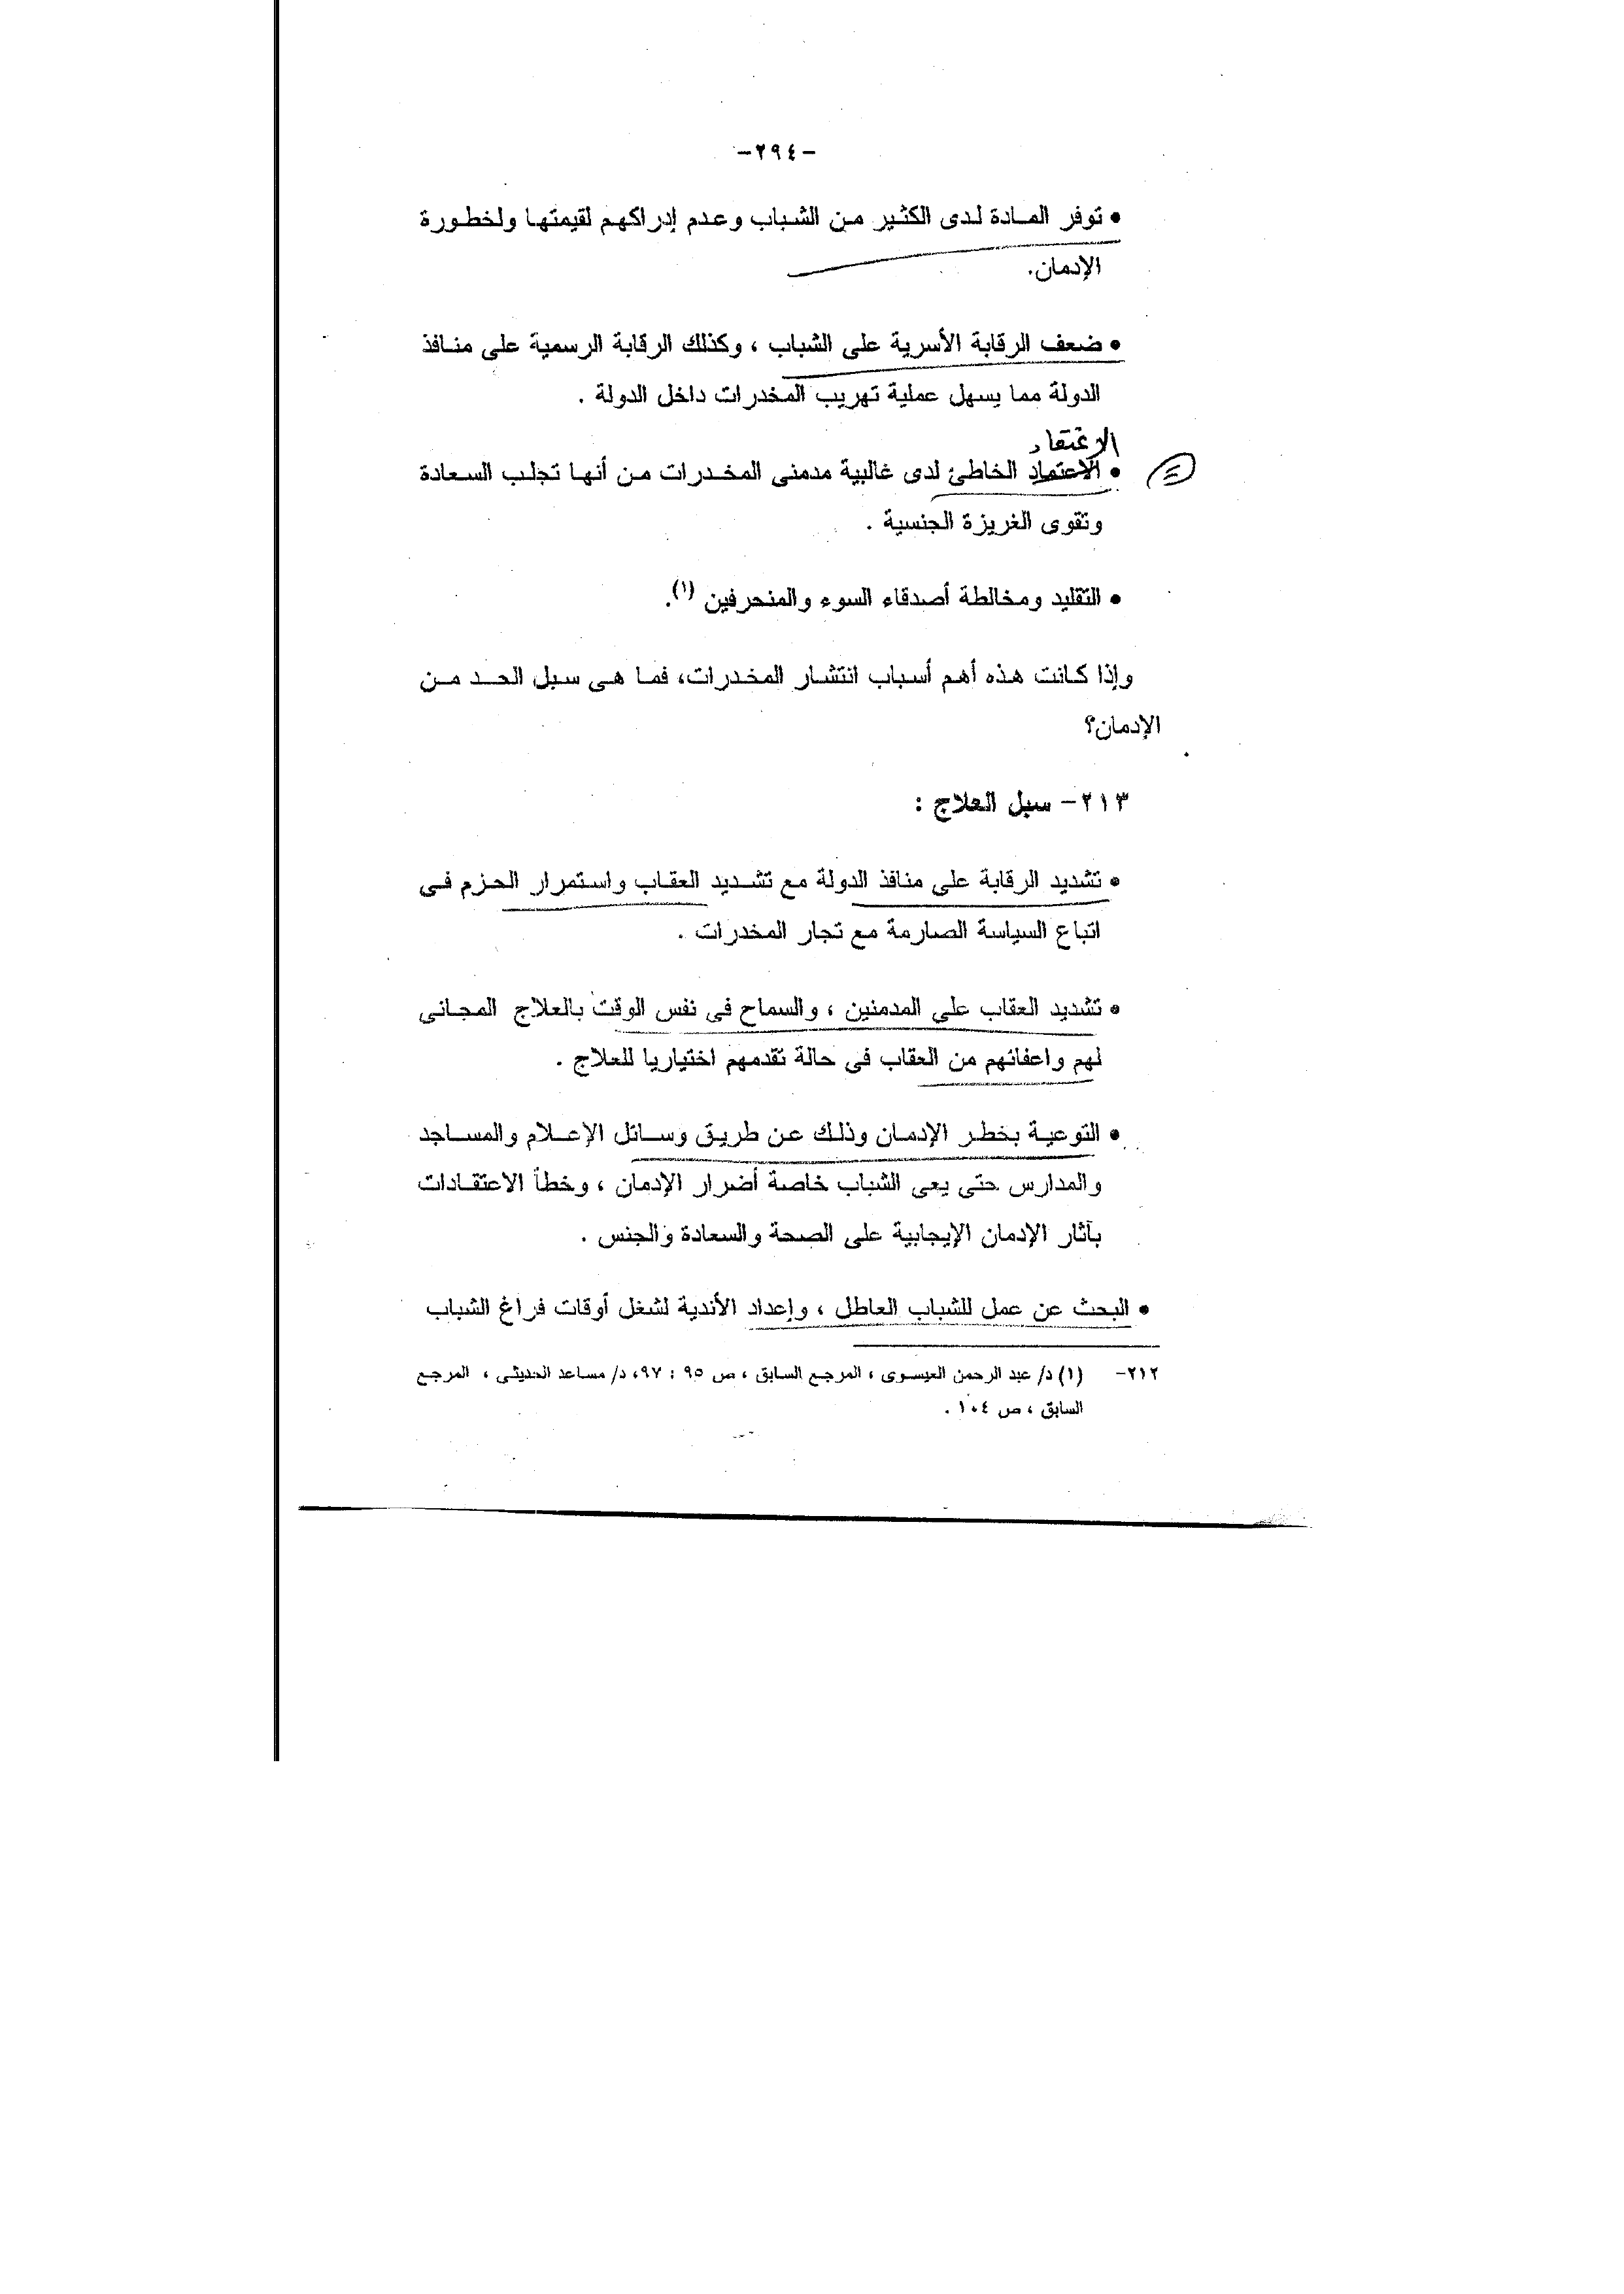 -٢٩٤-
• توفر المادة لدى الكثير من الشباب وعدم إدراكهم لقيمتها ولخطورة
الإدمان.
• ضعف الرقابة الأسرية على الشباب ، وكذلك الرقابة الرسمية على منافذ
الدولة مما يسهل عملية تهريب المخدرات داخل الدولة .
الاعتقاد
• الاعتماد الخاطئ لدى غالبية مدمنى المخدرات من أنها تجلب السعادة
وتقوى الغريزة الجنسية .
• التقليد ومخالطة أصدقاء السوء والمنحرفين (١).
وإذا كانت هذه أهم أسباب انتشار المخدرات، فما هى سبل الحد من
الإدمان؟
٢١٣- سبل العلاج :
• تشديد الرقابة على منافذ الدولة مع تشديد العقاب واستمرار الحزم فى
اتباع السياسة الصارمة مع تجار المخدرات .
• تشديد العقاب على المدمنين ، والسماح فى نفس الوقت بالعلاج المجانى
لهم واعفائهم من العقاب فى حالة تقدمهم اختياريا للعلاج .
• التوعية بخطر الإدمان وذلك عن طريق وسائل الإعلام والمساجد
والمدارس حتى يعى الشباب خاصة أضرار الإدمان ، وخطأ الاعتقادات
بآثار الإدمان الإيجابية على الصحة والسعادة والجنس .
• البحث عن عمل للشباب العاطل ، وإعداد الأندية لشغل أوقات فراغ الشباب
٢١٢- (١) د/ عبد الرحمن العيسوى ، المرجع السابق ، ص ٩٥ : ٩٧، د/ مساعد الحديثى ، المرجع
السابق ، ص ١٠٤ .